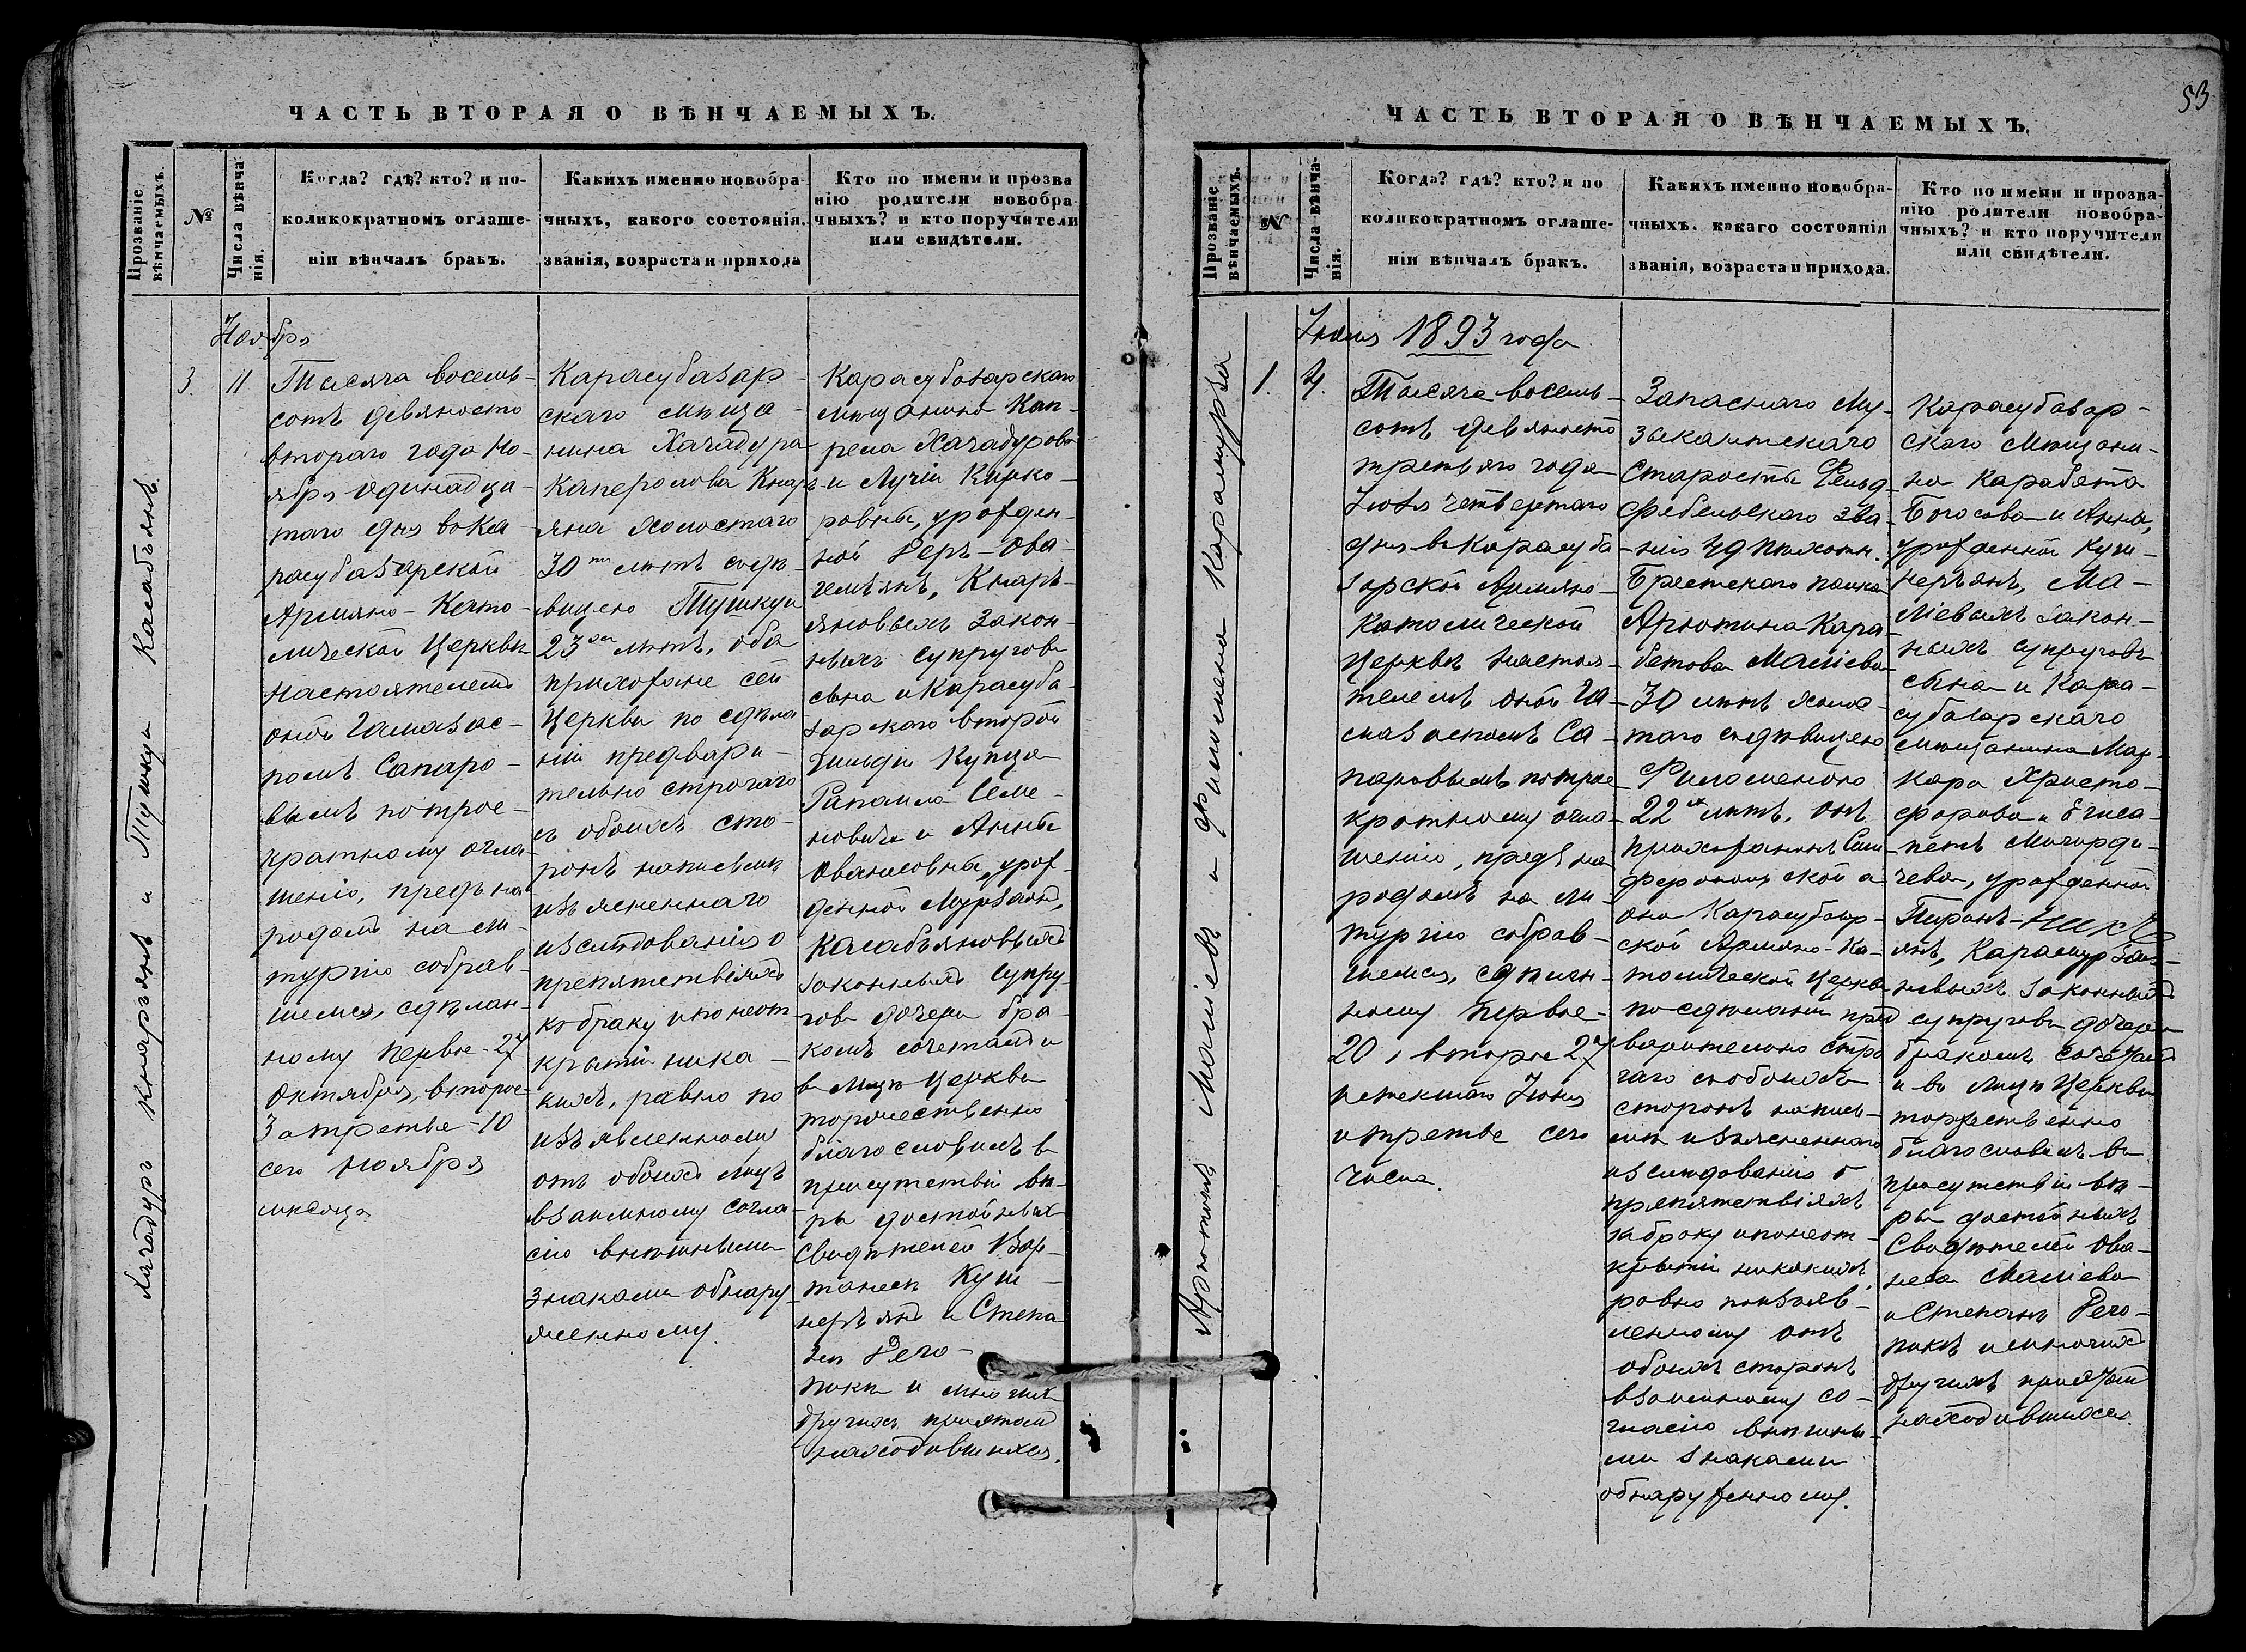 ЧАСТЬ ВТОРАЯ О ВѢНЧАЕМЫХЪ.
Прозваніе вѣнчаемыхъ.
№
Числа вѣнча
нія.
Когда? гдѣ? кто? и по-
коликократномъ оглаше-
ніи вѣнчалъ бракъ.
Какихъ именно новобра-
чныхъ, какого состоянія.
званія, возраста и прихода
Кто по имени и прозва
нію родители новобра-
чныхъ? и кто поручители
или свидѣтели.
Хачадуръ Кнаръянъ и Тушкуи Касабъянъ.
Ноября
3.
11
Тысяча восемь-
сотъ девяносто
втораго года Но-
ября одинадца-
таго дня въ Ка
расубазарской
Армяно-Като-
лической Церкви
Настоятелемъ
оной Гамазас-
помъ Сапаро-
вымъ по трое-
кратному огла-
шенію, предъ на
родомъ на ли-
тургію собрав-
шемся, сдѣлан-
ному первое-27
Октября, второе-
3 а третье-10
сего Ноября
мѣсяца
Карасубазар-
скаго мѣща-
нина Хачадура
Каперолова Кнаръ-
яна холостаго
30ти лѣтъ съ дѣ-
вицею Тушкуи
23хъ лѣтъ, оба
прихожане сей
Церкви по сдѣла
ніи предвари-
тельно строгаго
съ обоихъ сто-
ронъ написьмѣ
изъясненнаго
изслѣдованія о
препятствіяхъ
къ браку и по неот-
крытіи ника-
кихъ, равно по
изъявленному
отъ обоихъ лицъ
взаимному согла-
сію внѣшними
знаками обнару
женному.
Карасубазарскаго
мѣщанина Кап-
рела Хачадурова
и Лучіи Кирко-
ровны, урожден-
ной Деръ-Ова-
гемъянъ, Кнаръ-
яновыхъ закон-
ныхъ супруговъ
сына и Карасуба-
зарскаго второй
гильдіи Купца
Рапаила Семе-
новича и Анны
Ованесовны, урож-
денной Мурзаянъ,
Касабъяновыхъ
законныхъ супру-
говъ дочерью бра-
комъ сочеталъ и
въ лицѣ Церкви
торжественно
благословилъ въ
присутствіи вѣ-
ры достойныхъ
Свидѣтелей Вар-
танеса Куш-
неръянъ и Степа-
на Рего-
пика и многихъ
другихъ при этомъ
находившихся.
53
ЧАСТЬ ВТОРАЯ О ВѢНЧАЕМЫХЪ.
Прозваніе вѣнчаемыхъ.
№
Числа вѣнча-
нія.
Когда? гдѣ? кто? и по
коликократномъ оглаше-
ніи вѣнчалъ бракъ.
Какихъ именно новобра-
чныхъ. какаго состоянія
званія, возраста и прихода.
Кто по имени и прозва-
нію родители новобра-
чныхъ? и кто поручители
или свидѣтели.
Арютинъ Маліевъ и Филомена Карамурза
Іюля 1893 года
1.
4.
Тысяча восемь-
сотъ девяносто
третьяго года
Іюля четвертаго
дня въ Карасуба
зарской Армяно-
Католической
Церкви настоя-
телемъ оной Га-
мазаспомъ Са-
паровымъ по трое
кратному огла-
шенію, предъ на
родомъ на ли-
тургію собрав-
шемся, сдѣлан-
ному первое-
20, второе 27
истекшаго Іюня
и третье сего
числа.
Запаснаго Му-
зыкантскаго
Старосты Фельд-
фебельскаго зва-
нія 49 пѣхотн.
Брестскаго полка
Арютина Кара-
бетова Маліева
30 лѣтъ холос-
таго съ дѣвицею
Филоменою
22хъ лѣтъ, онъ
прихожанинъ Сим-
феропольской а
она Карасубазар-
ской Армяно-Ка-
толической Церкви
по сдѣланіи пред
варительно стро
гаго съ обоихъ
сторонъ напись-
мѣ изъясненнаго
изслѣдованія о
препятствіяхъ
къ браку и по неот-
крытіи никакихъ,
равно по изъяв-
ленному отъ
обоихъ сторонъ
взаимному со-
гласію внѣшни-
ми знаками
обнаруженному.
Карасубазар-
скаго мѣщани-
на Карабета
Богосова и Анны,
урожденной Куш-
неръянъ, Ма-
ліевыхъ закон-
ныхъ супруговъ
сына и Кара-
субазарскаго
мѣщанина Мар-
кара Христо-
форова и Егиса-
петъ Мигирди-
чева, урожденной
Пиранъ-
янъ, Карамурза-
новыхъ законныхъ
супруговъ дочерью
бракомъ сочеталъ
и въ лицѣ Церкви
торжественно
благословилъ въ
присутствіи вѣ-
ры достойныхъ
Свидѣтелей Ова-
неса Маліева
и Степанъ Рего-
пикъ и многихъ
другихъ при этомъ
находившихся.